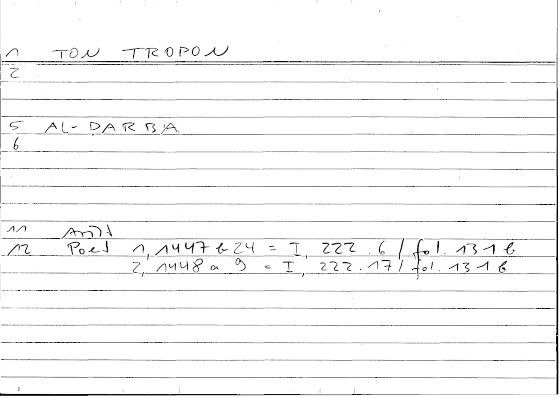 1 TON TROPON
2
5 AL-DARBA
6
11 Arist
12 Poet 1, 1447 b 24 = I, 222.6 / fol. 131 b
2, 1448 a 9 = I, 222.17 / fol. 131 b